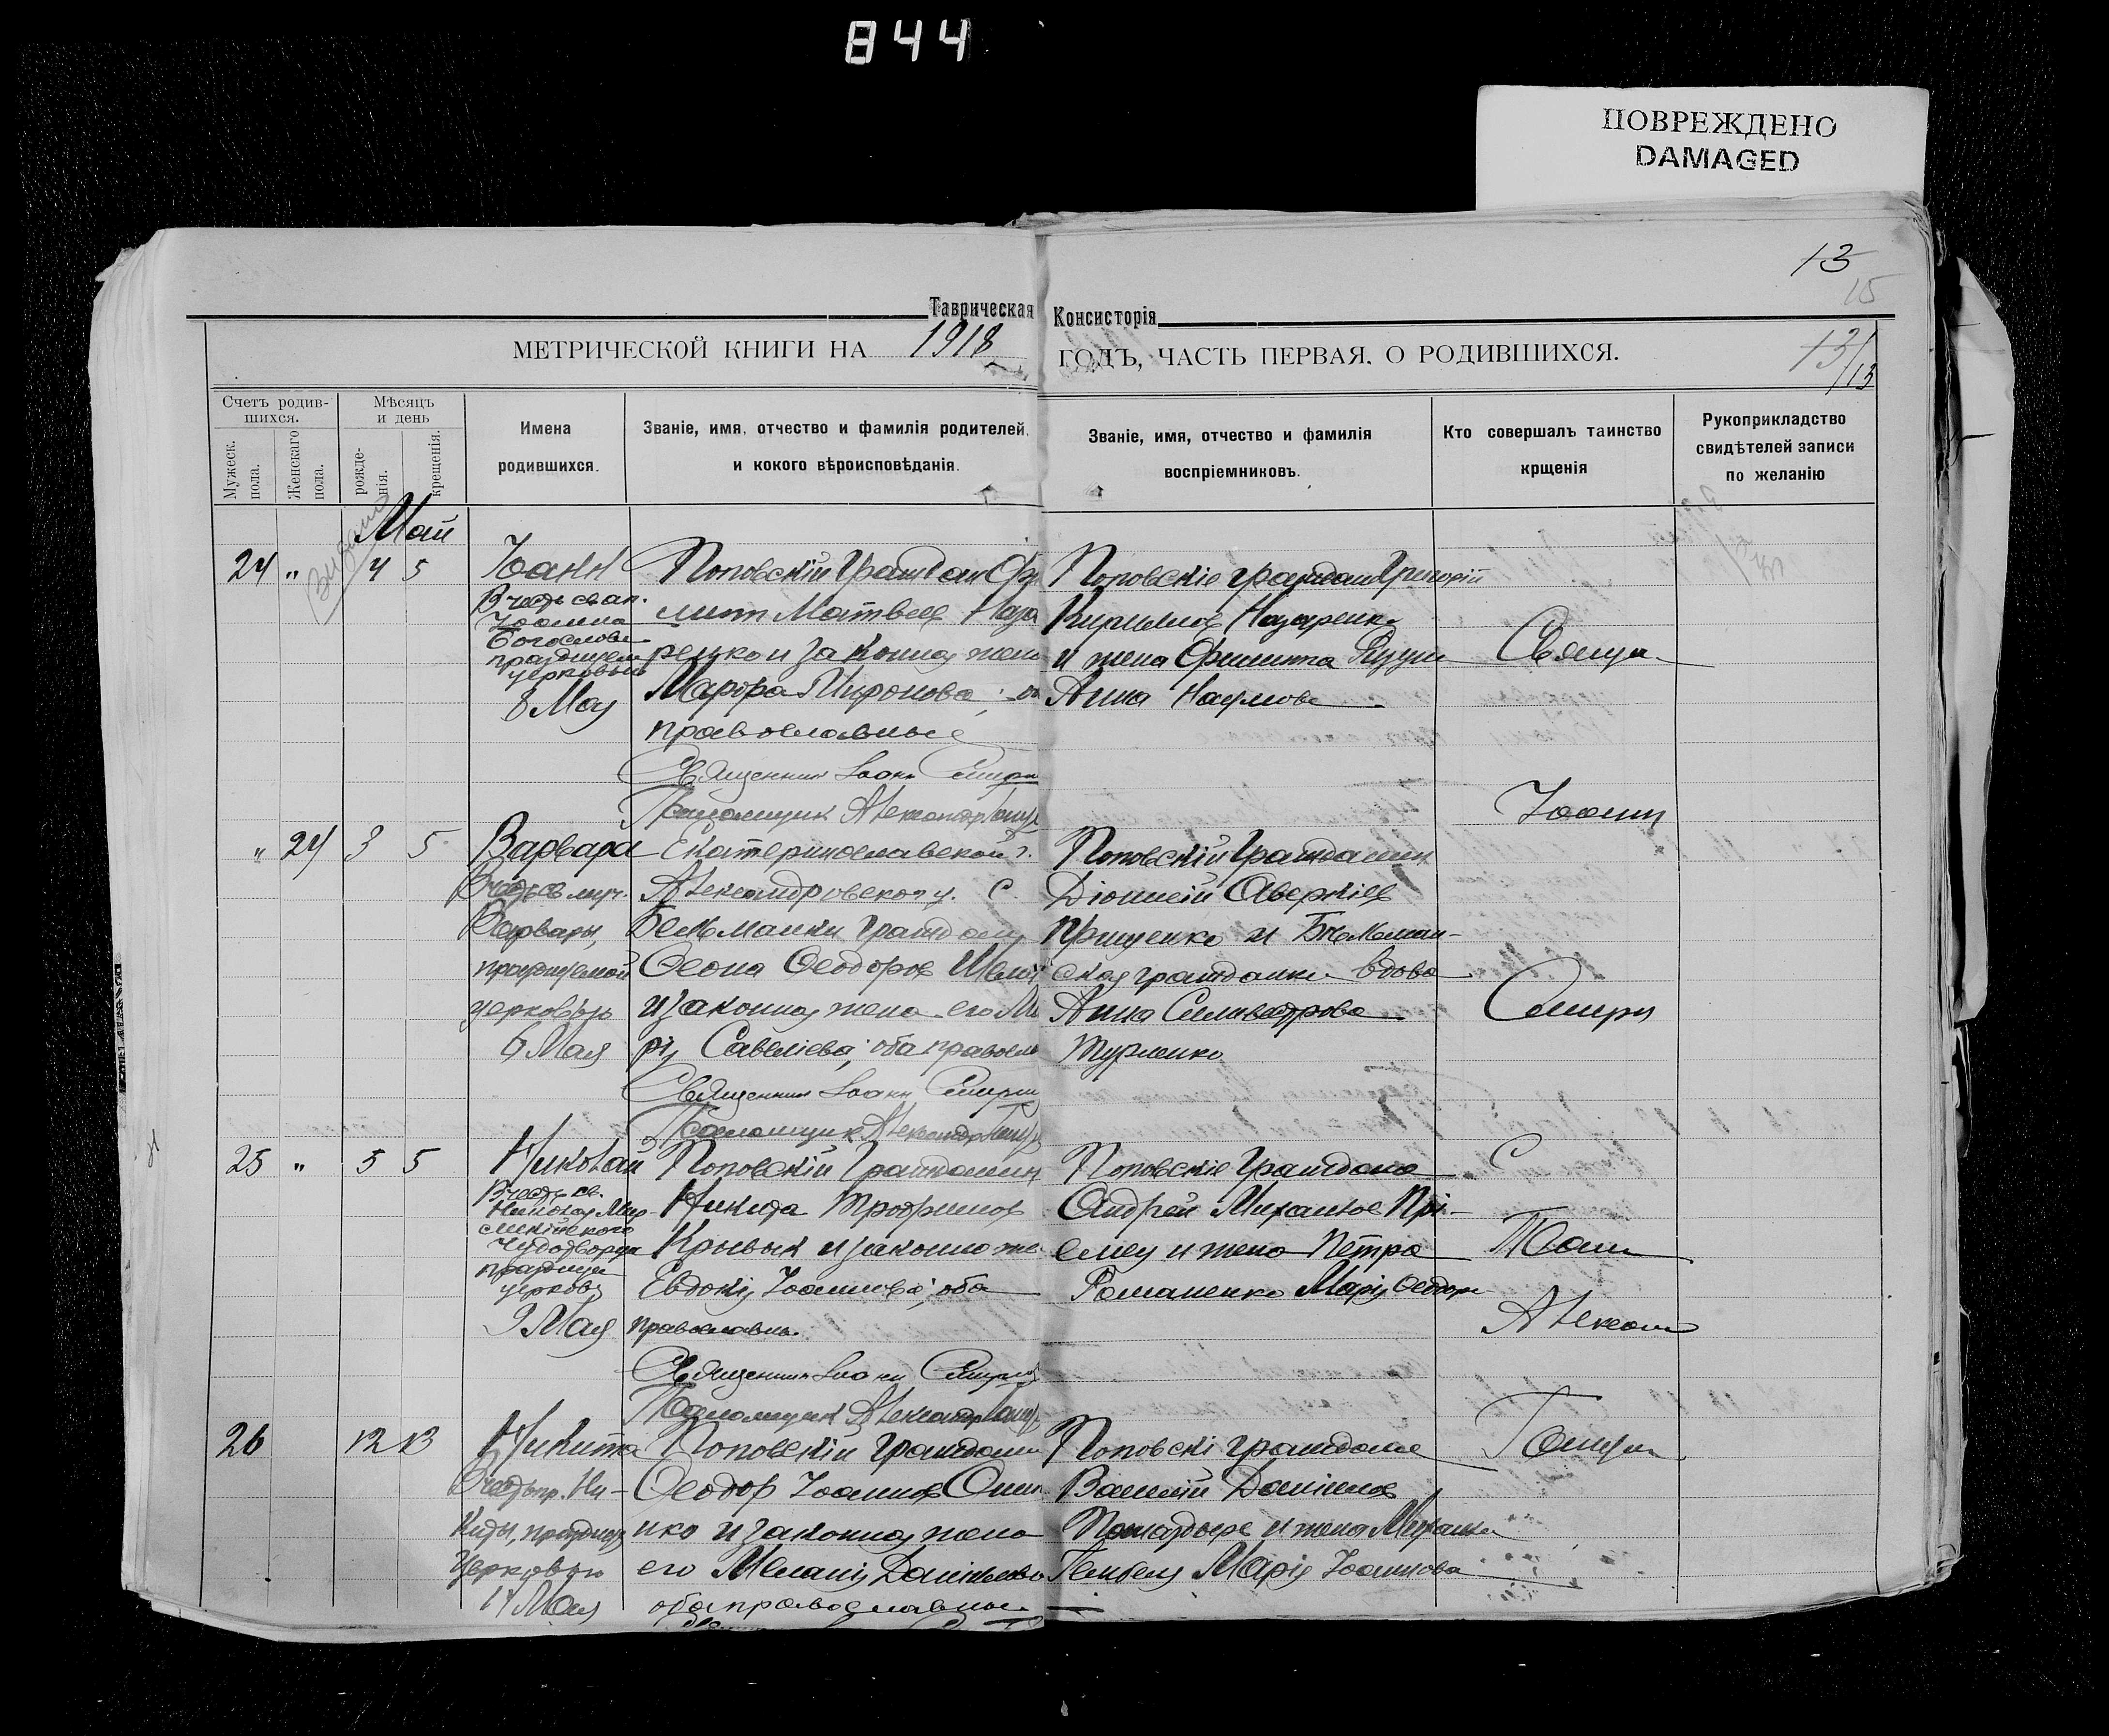 844
ПОВРЕЖДЕНО
DAMAGED
13
15
Таврическая Консисторія
МЕТРИЧЕСКОЙ КНИГИ НА 1918 ГОДЪ, ЧАСТЬ ПЕРВАЯ, О РОДИВШИХСЯ.
13/13
Счетъ родив-
шихся.
Мужеск. пола.
Женскаго пола.
Мѣсяцъ
и день
рожде-
нія.
крещенія.
Имена
родившихся.
Званіе, имя, отчество и фамилія родителей,
и кокого вѣроисповѣданія.
Званіе, имя, отчество и фамилія
воспріемниковъ.
Кто совершалъ таинство
крщенія
Рукоприкладство
свидѣтелей записи
по желанію
Май
24 " 4 5
Іоанн
В честь св. ап.
Іоанна
Богослова
празднуем
церковью
8 Мая
Поповскій Граждан
Матвеев Наза
ренко и законная жена
Марфа Миронова; об
православные
Священник Іоанн Смирн
Псаломщик Александр
Поповскіе граждан Григорій
Кириллов Назаренко
и жена Филиппа
Анна Наумова
Священ
Іоанн
" 24 3 5
Варвара
В честь св. муч.
Варвары,
празднуемой
церковью
6 Мая
Екатеринославской г.
Александровскаго у. С.
Бельманки Гражданин
Феодоров
и законная жена его Ма
рія Савеліева; оба правосла
Священник Іоанн Смирн
Псаломщик Александр
Поповскій Гражданин
Діонисій Аверкіев
Грищенко и Бельман-
ская гражданка вдова
Анна Сильвестрова
Журленко
Смирн
25 " 5 5
Николай
В честь св.
Николая Мир-
ликійского
Чудотворца
празднуем
церковью
9 Мая
Поповскій Гражданин
Никита Трофимов
Кривых и законная же
Евдокія Іоаннова; оба
православны.
Священник Іоанн Смирн
Псаломщик Александр
Поповскіе Граждане
Андрей Михайлов
и жена Петра
Романенко Марія Феодоро
Псалм
Александ
26 12 13
Никита
В честь пр. Ни-
киты, празднуем
Церковью
14 Мая
Поповскій Граждани
Феодор Іоаннов Они
нко и законная жена
его Меланія Данилова
оба православные.
Поповскі граждане
Василій Данилов
и жена Михаила
Марія Іоаннова